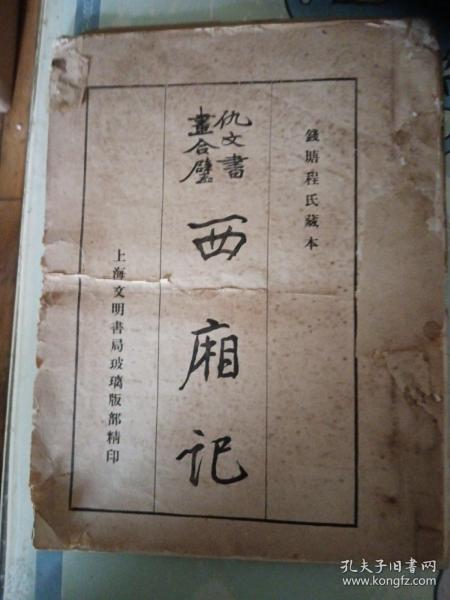 錢塘程氏藏本
仇文書
畫合璧
西廂記
上海文明書局玻璃版部精印
孔夫子旧书网
www.kongfz.com